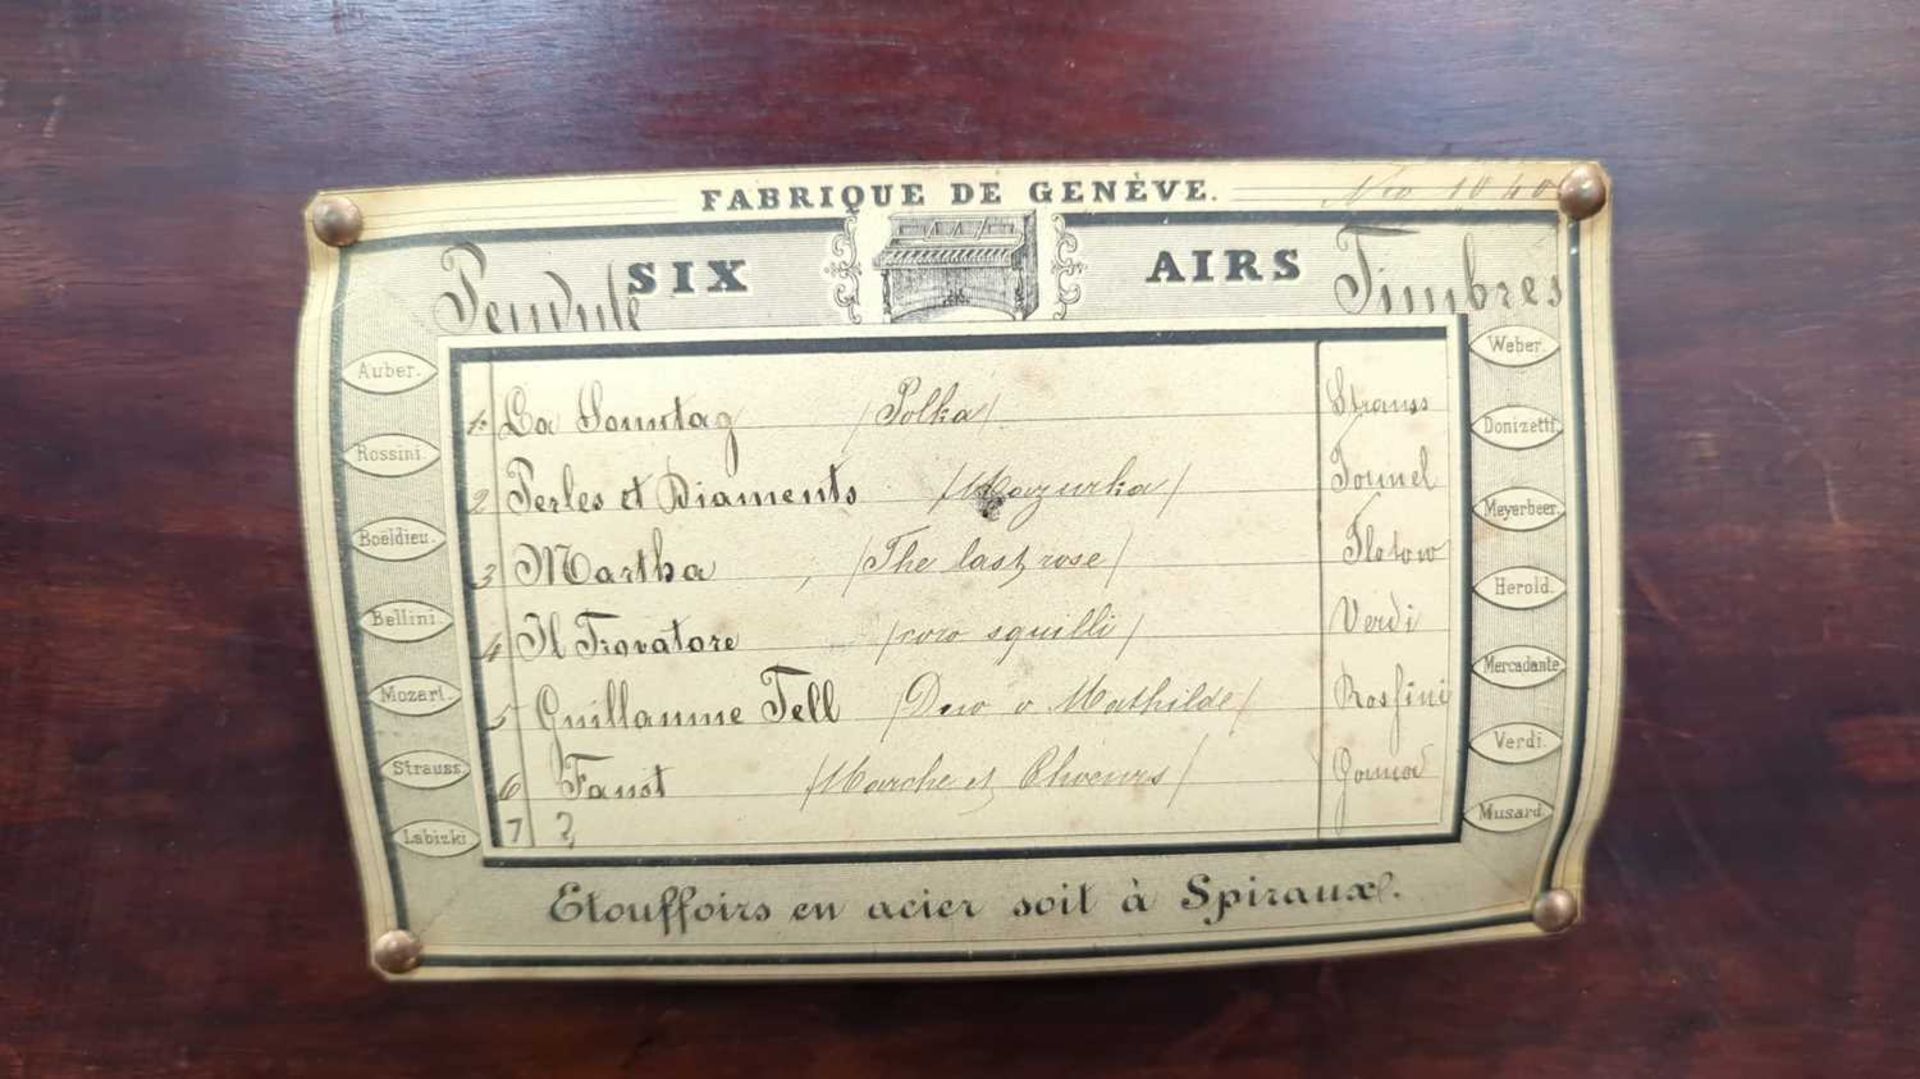 FABRIQUE DE GENÈVE. Nro 1040
Pendule SIX AIRS Timbres
Auber.
Rossini.
Boëldieu.
Bellini.
Mozart.
Strauss.
Labizki
1. La Sonntag /Polka/ Strauss
2 Perles et Diaments /Mazurka/
3 Martha /The last rose/ Flotow
4 Il Trovatore /coro squilli/ Verdi
5 Guillaume Tell /Duo v Mathilde/ Rossini
6 Faust /Marche et Choeurs/ Gounod
7 ?
Weber.
Donizetti.
Meyerbeer.
Herold.
Mercadante.
Verdi.
Musard.
Etouffoirs en acier soit à Spiraux.